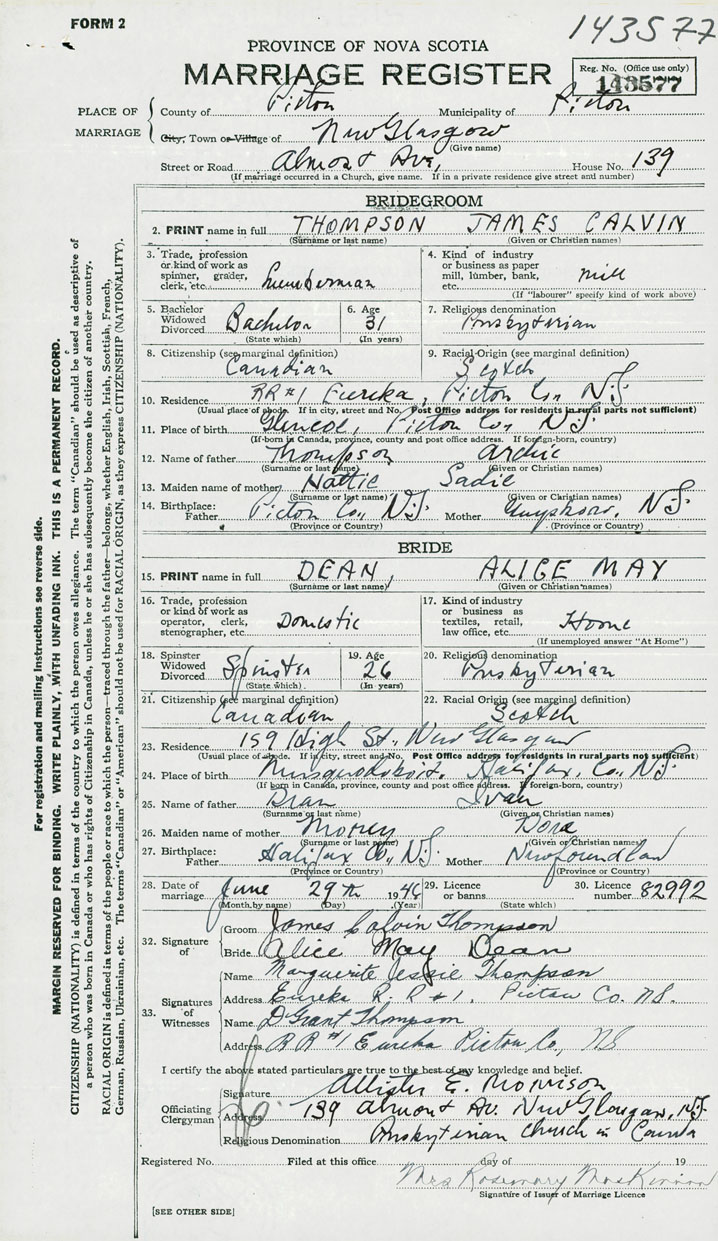 FORM 2
143577
PROVINCE OF NOVA SCOTIA
MARRIAGE REGISTER
Reg. No. (Office use only)
143577
PLACE OF MARRIAGE
County of Pictou Municipality of Pictou
City, Town or Village of New Glasgow
(Give name)
Street or Road Almont Ave, House No. 139
(If marriage occurred in a Church, give name. If in a private residence give street and number)
BRIDEGROOM
2. PRINT name in full THOMPSON JAMES CALVIN
(Surname or last name) (Given or Christian names)
3. Trade, profession or kind of work as spinner, grader, clerk, etc. Lumberman
4. Kind of industry or business as paper mill, lumber, bank, etc. mill
(If "labourer" specify kind of work above)
5. Bachelor Widowed Divorced Bachelor
(State which)
6. Age 31
(In years)
7. Religious denomination Presbyterian
8. Citizenship (see marginal definition) Canadian
9. Racial Origin (see marginal definition) Scotch
10. Residence RR #1 Eureka, Pictou Co., N.S.
(Usual place of abode. If in city, street and No. Post Office address for residents in rural parts not sufficient)
11. Place of birth Glencoe, Pictou Co., N.S.
(If born in Canada, province, county and post office address. If foreign-born, country)
12. Name of father Thompson Archie
(Surname or last name) (Given or Christian names)
13. Maiden name of mother Hattie Sadie
(Surname or last name) (Given or Christian names)
14. Birthplace: Father Pictou Co., N.S. Mother Guysboro, N.S.
(Province or Country) (Province or Country)
BRIDE
15. PRINT name in full DEAN, ALICE MAY
(Surname or last name) (Given or Christian names)
16. Trade, profession or kind of work as operator, clerk, stenographer, etc. Domestic
17. Kind of industry or business as textiles, retail, law office, etc. Home
(If unemployed answer "At Home")
18. Spinster Widowed Divorced Spinster
(State which)
19. Age 26
(In years)
20. Religious denomination Presbyterian
21. Citizenship (see marginal definition) Canadian
22. Racial Origin (see marginal definition) Scotch
23. Residence 159 High St., New Glasgow
(Usual place of abode. If in city, street and No. Post Office address for residents in rural parts not sufficient)
24. Place of birth Musquodoboit, Halifax, Co., N.S.
(If born in Canada, province, county and post office address. If foreign-born, country)
25. Name of father Dean Ivan
(Surname or last name) (Given or Christian names)
26. Maiden name of mother Dora
(Surname or last name) (Given or Christian names)
27. Birthplace: Father Halifax Co., N.S. Mother Newfoundlan
(Province or Country) (Province or Country)
28. Date of marriage June 29th 1946
(Month by name) (Day) (Year)
29. Licence or banns
(State which)
30. Licence number 82992
32. Signature of
Groom James Calvin Thompson
Bride Alice May Dean
33. Signatures of Witnesses
Name Marguerite Jessie Thompson
Address Eureka R. R #1. Pictou Co. N.S.
Name D Grant Thompson
Address RR #1 Eureka Pictou Co, NS
I certify the above stated particulars are true to the best of my knowledge and belief.
Officiating Clergyman
Signature Allister E. Morrison
Address 139 Almont Av. New Glasgow, N.S.
Religious Denomination Presbyterian Church in Canada
Registered No. Filed at this office day of 19
Mrs Rosemary MacKinnon
Signature of Issuer of Marriage Licence
[SEE OTHER SIDE]
For registration and mailing instructions see reverse side.
MARGIN RESERVED FOR BINDING. WRITE PLAINLY, WITH UNFADING INK. THIS IS A PERMANENT RECORD.
CITIZENSHIP (NATIONALITY) is defined in terms of the country to which the person owes allegiance. The term "Canadian" should be used as descriptive of
a person who was born in Canada or who has rights of Citizenship in Canada, unless he or she has subsequently become the citizen of another country.
RACIAL ORIGIN is defined in terms of the people or race to which the person—traced through the father—belongs, whether English, Irish, Scottish, French,
German, Russian, Ukrainian, etc. The terms "Canadian" or "American" should not be used for RACIAL ORIGIN, as they express CITIZENSHIP (NATIONALITY).